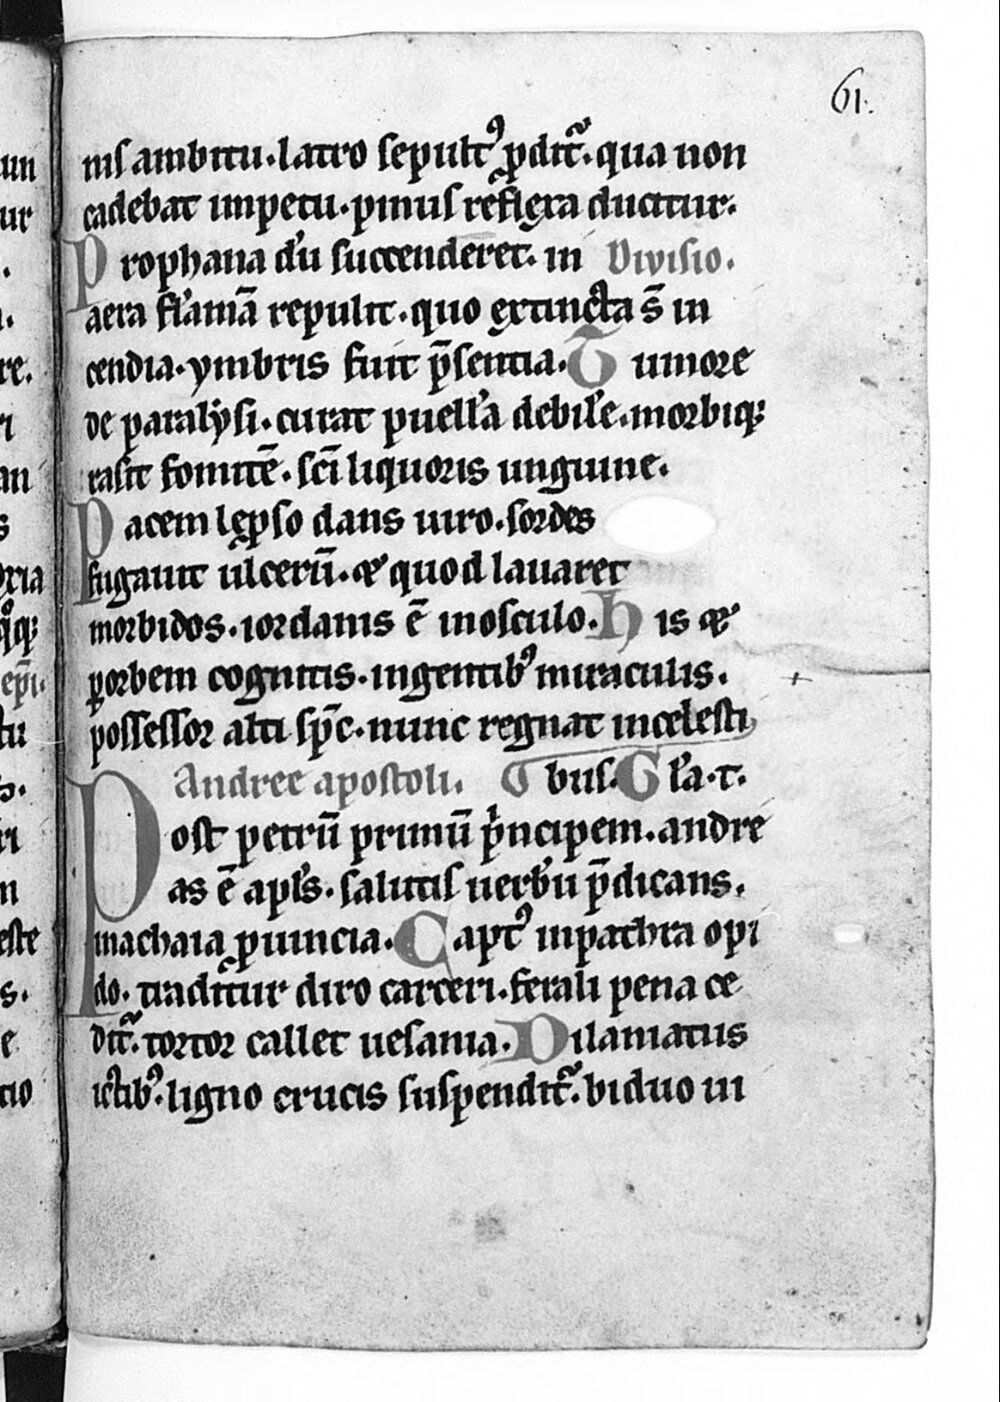 61.
nis ambitu. latro sepultꝰ ꝓditᷣ. qua non
cadebat impetu. pinus reflexa ducitur.
Prophana dū succenderet. in Divisio.
aera flāmā repulit. quo extincta s̄ in
cendia. ymbris fuit p̄sentia. Tumore
de paralysi. curat puellā debilē. morbiqꝫ
rasit fomitē. sc̄i liquoris unguine.
Pacem lep̱so dans uiro. sordes
fugauit ulcerū. et quod lauaret
morbidos. iordanis ē inosculo. His et
ꝑorbem cognitis. ingentibꝰ miraculis.
possessor alti sp̄c. nunc regnat incelesti
Andree apostoli. Tbus. Gl'a. t.
Post petrū primū p̍ncipem. andre
as ē apl's. salutis uerbū p̄dicans.
inachaia ꝓuincia. Captꝰ inpathra opi
do. traditur diro carceri. ferali pena ce
ditᷣ. tortor callet uesania. Dilaniatus
ictibꝰ. ligno crucis suspenditᷣ. biduo ui